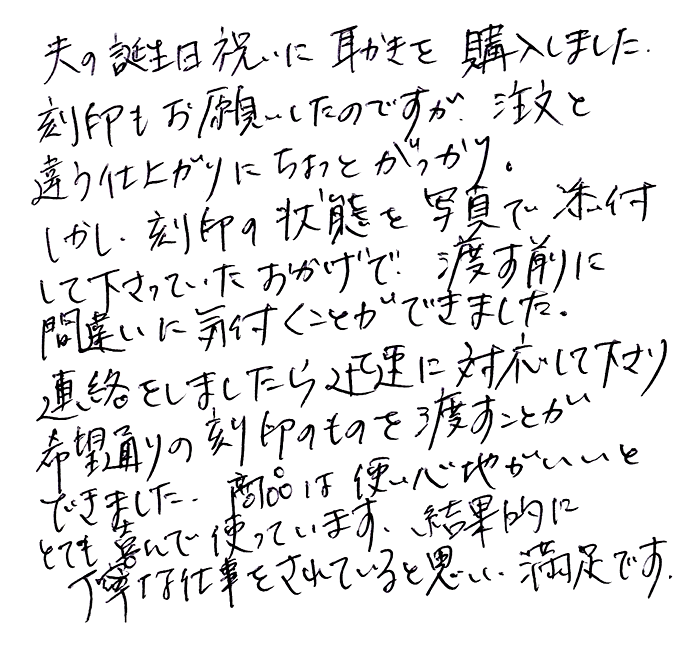 夫の誕生日祝いに耳かきを購入しました.
刻印もお願いしたのですが、注文と
違う仕上がりにちょっとがっかり。
しかし、刻印の状態を写真で添付
して下さっていたおかげで、渡す前に
間違いに気付くことができました。
連絡をしましたら迅速に対応して下さり
希望通りの刻印のものを渡すことが
できました. 商品は使い心地がいいと
とても喜んで使っています、結果的に
丁寧な仕事をされていると思い、満足です.